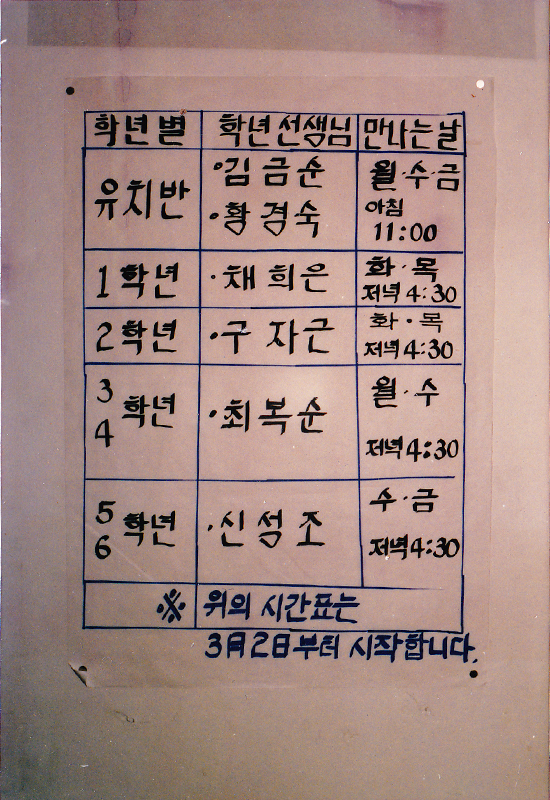 학년별 학년선생님 만나는날
유치반 ·김금순 월·수·금
·황경숙 아침
11:00
1학년 ·채희은 화·목
저녁 4:30
2학년 ·구자근 화·목
저녁 4:30
3 월·수
학년 ·최복순
4 저녁 4:30
5 수·금
학년 ·신성조
6 저녁 4:30
※ 위의 시간표는
3月2日부터 시작합니다.